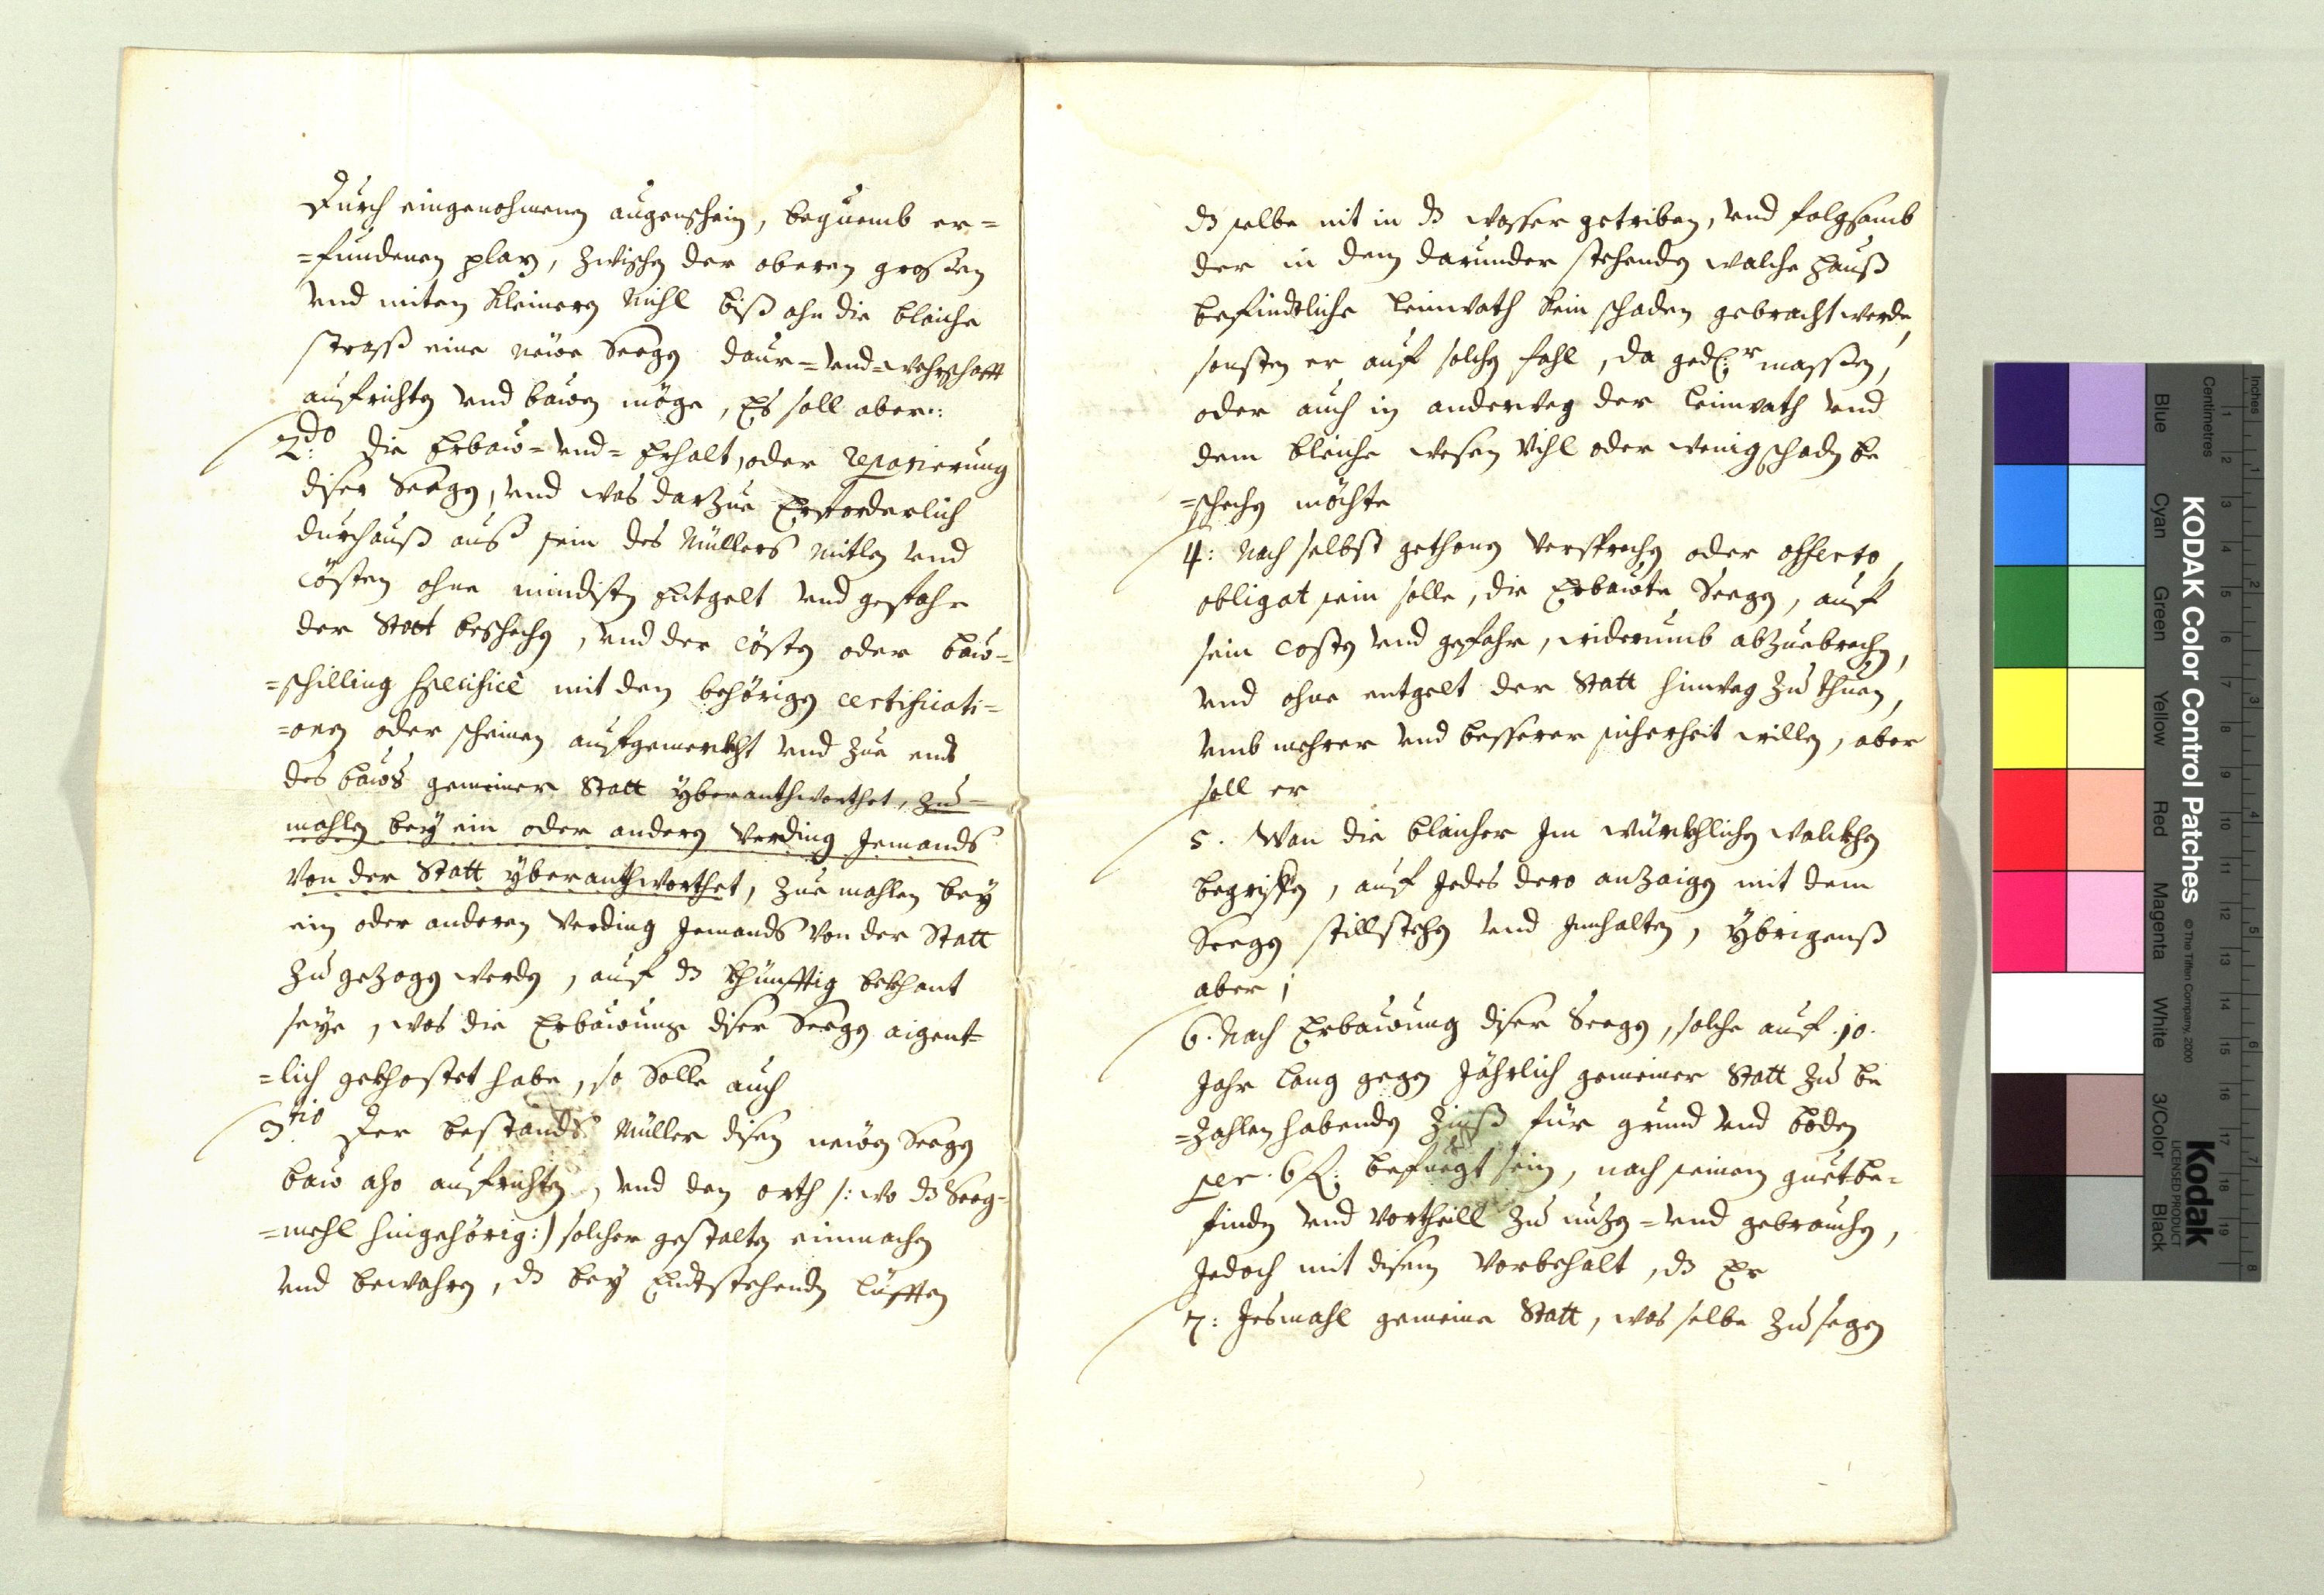 Durch eingenohmenen augenschein, bequemb er=
=fundenen plaz, zwischen der oberen grossen
vnd miten kleinern Mihl biß ahn die bleiche
strass eine neüwe Seegen daur= vnd= wehrschafft
aufrichten vnd bauen möge, Es soll aber:
2.do Die Erbaw= vnd= Erhalt, oder reparierung
diser Seegen, vnd was darzue Erforderlich
durchauß auß sein des Müllers mitlen vnd
cösten ohne mindisten Entgelt vnd gefahr
der Statt beschechen, vnd der cösten oder baw=
=schilling specificè mit den behörigen certificati=
=onen oder scheinen aufgemerkht vnd zue endt
des bawß gemeiner Statt yberanthworthet, zu=
mahlen bey ein oder anderen verding Jemands
von der Statt yberanthworthet, zue mahlen bey
ein oder anderen verding Jemands von der Statt
zu gezogen werden, auf dz khünfftig bekhant
seye, was die Erbauung diser Seegen aigent=
=lich gekhostet habe, so Solle auch
3.tio Der bestands Müller disen neüwen Seegen
baw also aufrichten, vnd den orth /: wo dz Seeg=
=mehl hingehörig :/ solcher gestalten einmachen
vnd bewahren, dz bey Endtstehenden lüfften
dz selbe nit in dz wasser getriben, vnd folgsamb
der in dem darunder stehenden walche hauß
befindtliche leinwath kein schaden gebracht werde,
sonsten er auf solchen fahl, da gedr. massen,
oder auch in anderweg der leinwath vnd
dem bleiche wesen vihl oder wenig schaden be
=schechen möchte
4: Nach selbst gethonen versprechen oder offerto,
obligat sein solle, die Erbawte Seegen, auf
sein costen vnd gefahr, widerumb abzuebrechen,
vnd ohne entgelt der Statt hinweg zu thuen,
vmb mehrer vnd besserer sicherheit willen, aber
soll er
5. Wan die bleicher Jm würkhlichen walckhen
begriffen, auf Jedes dero anzaigen mit dem
Seegen stillstehen vnd Jnnhalten, ybrigenß
aber;
6. Nach Erbauung diser Seegen, solche auf 10.
Jahr lang gegen Jährlich gemeiner Statt zu be
=zahlen habenden Zinß für grund vnd boden
per. 6 fl: befuegt sein, nach seinem guetbe=
finden vnd vortheill zu nuzen= vnd gebrauchen,
Jedoch mit disem vorbehalt, dz Er
7: Jesmahl gemeine Statt, was selbe zu segen
KODAK Color Control Patches
© The Tiffen Company, 2000
Kodak
LICENSED PRODUCT
Inches
Centimetres
Blue
Cyan
Green
Yellow
Red
Magenta
White
3/Color
Black